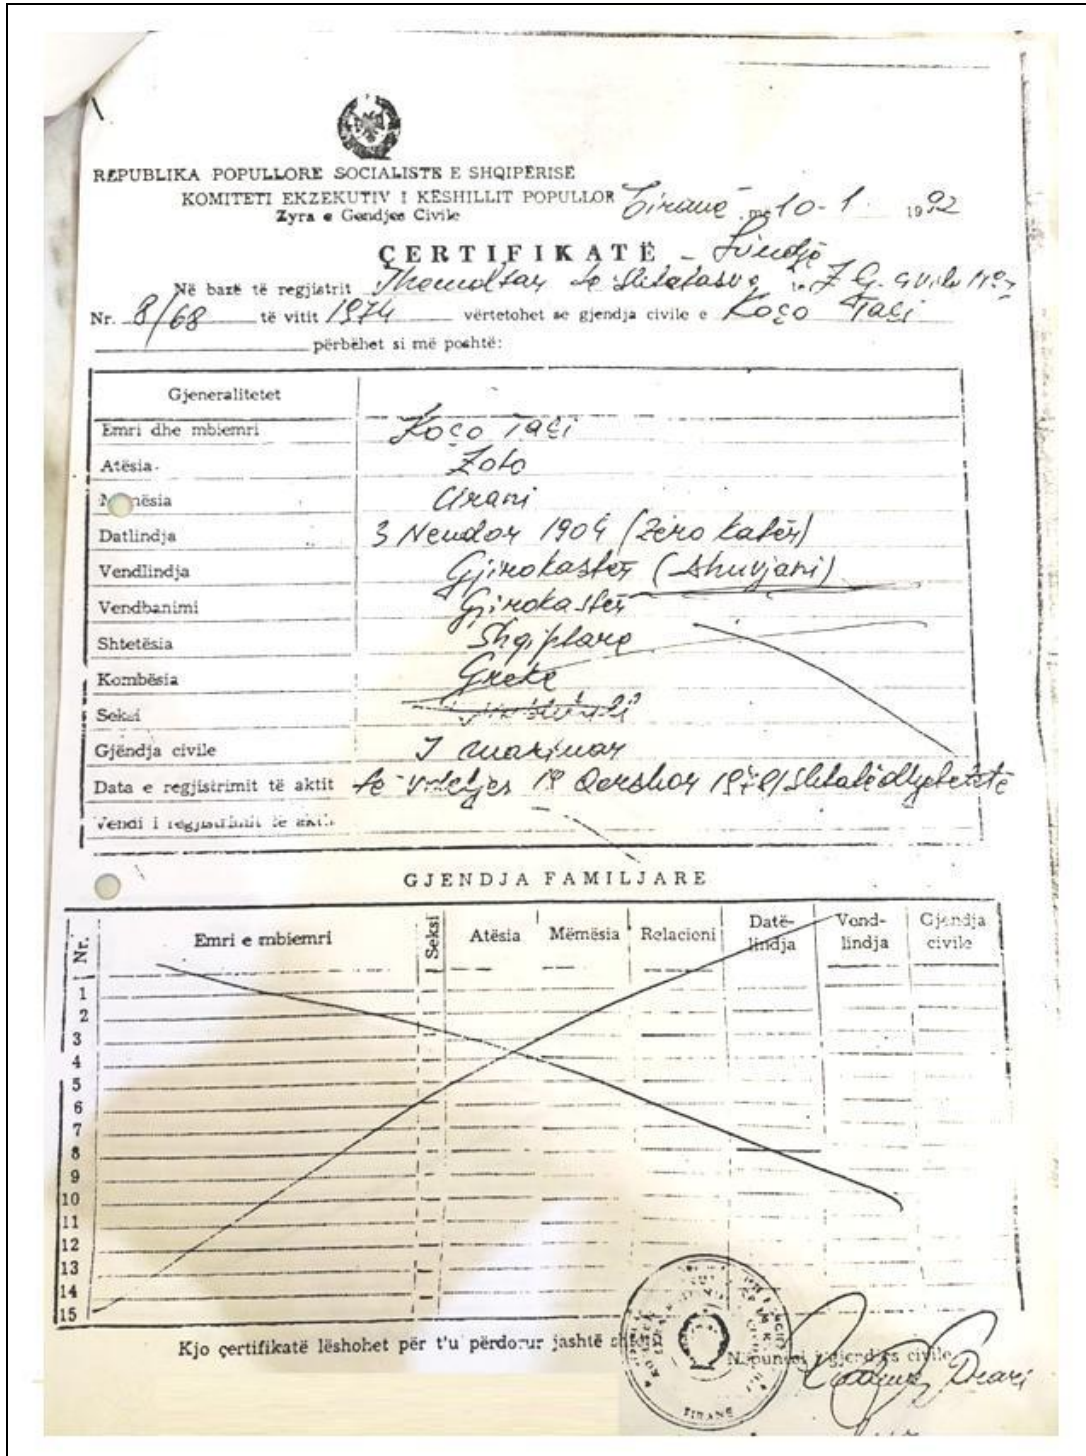 REPUBLIKA POPULLORE SOCIALISTE E SHQIPËRISË
KOMITETI EKZEKUTIV I KËSHILLIT POPULLOR Tiranë më 10-1 1992
Zyra e Gendjes Civile
ÇERTIFIKATË - Lindje
Në bazë të regjistrit Themeltar
Nr. 8/68 të vitit 1974 vërtetohet se gjendja civile e Koço Taçi
përbëhet si më poshtë:
Gjeneralitetet
Emri dhe mbiemri Koço Taçi
Atësia Zoto
Mëmësia
Datlindja 3 Nendor 1904 (Zero katër)
Vendlindja Gjirokastër (Shuvjani)
Vendbanimi Gjirokastër
Shtetësia Shqiptare
Kombësia Greke
Seksi
Gjëndja civile I martuar
Data e regjistrimit të aktit të vdekjes Qershor
Vendi i regjistrimit të aktit
GJENDJA FAMILJARE
Nr. Emri e mbiemri Seksi Atësia Mëmësia Relacioni Datë-lindja Vend-lindja Gjendja civile
1
2
3
4
5
6
7
8
9
10
11
12
13
14
15
Kjo çertifikatë lëshohet për t'u përdorur jashtë
Nëpunësi i gjendjes civile
TIRANË